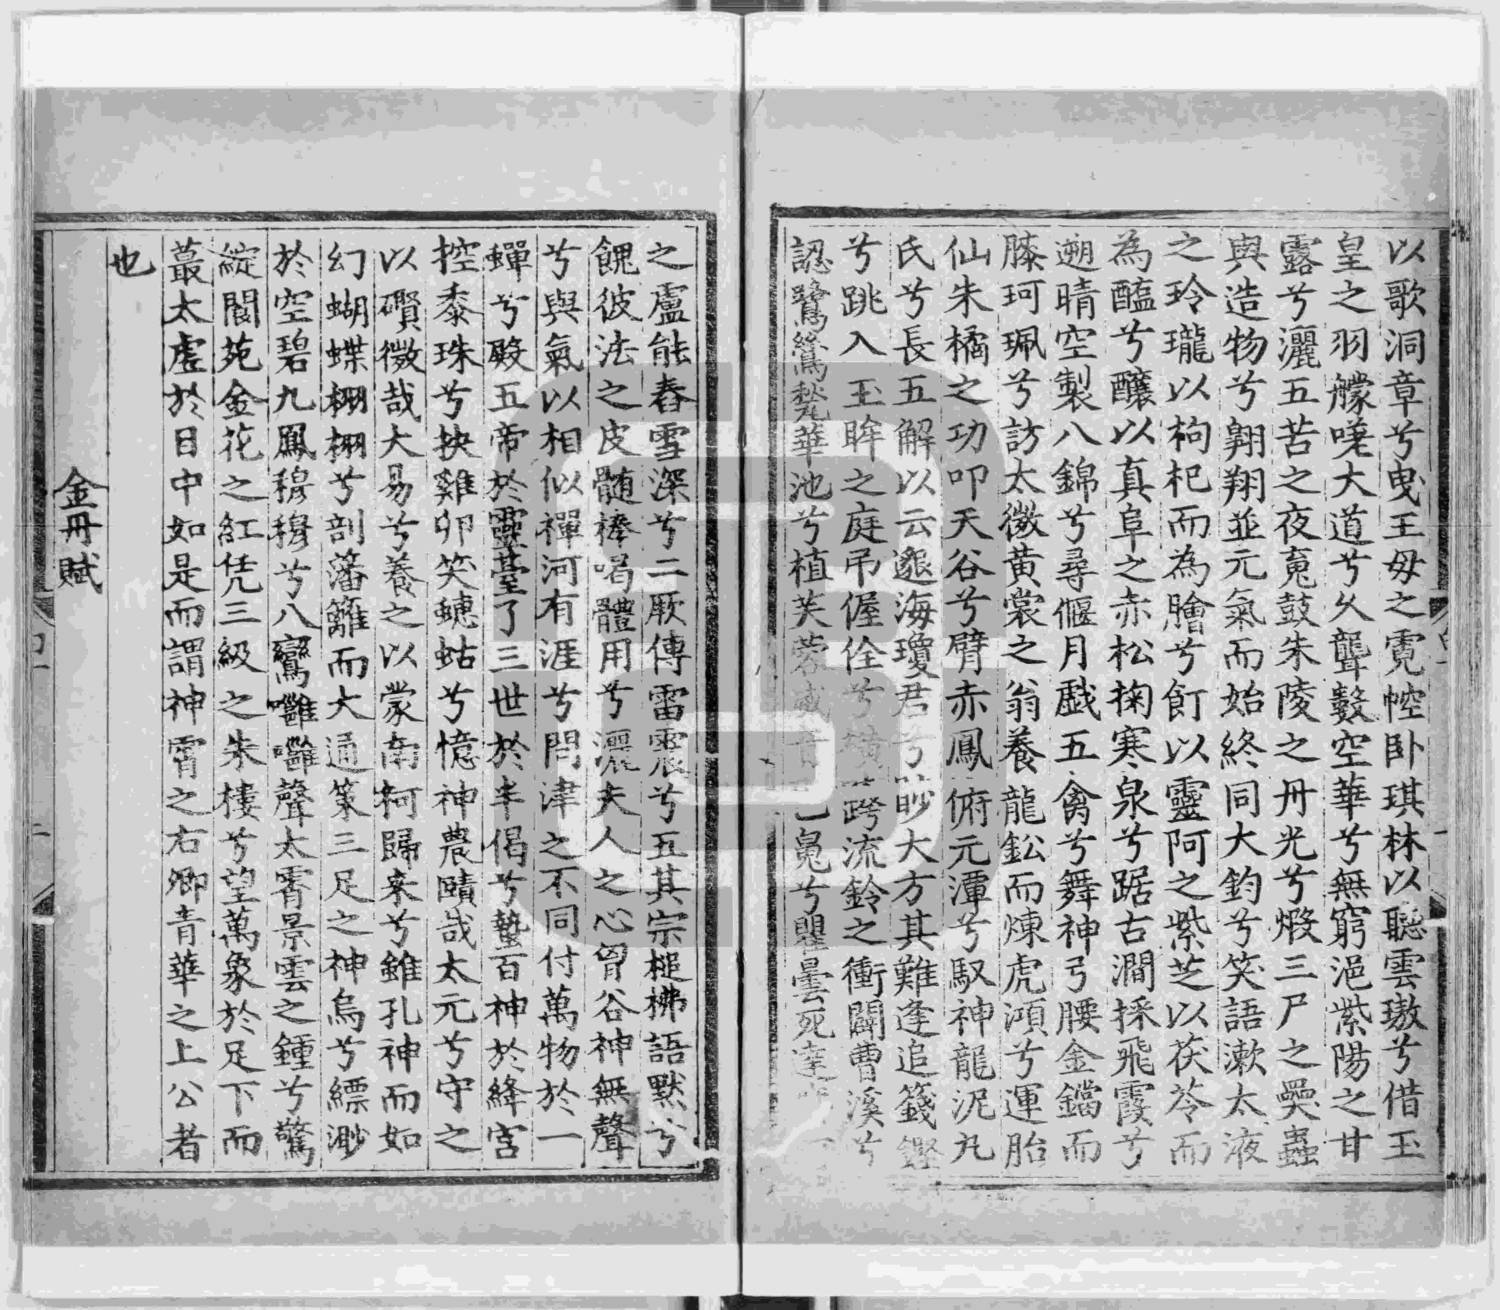 以歌洞章兮曳王母之霓幢卧琪林以聽雲璈兮借玉
皇之羽艨嘆大道兮久聾瞽空華兮無窮浥紫陽之甘
露兮灑五苦之夜鼓朱陵之丹光兮煅三尸之爂蟲
與造物兮翱翔並元氣而始終同大鈞兮笑語漱太液
之玲瓏以枸杞而為膾兮飣以靈阿之紫芝以茯苓而
為醢兮釀以真阜之赤松掬寒泉兮踞古澗採飛霞兮
遡晴空製八錦兮尋偃月戲五禽兮舞神弓腰金鐺而
膝珂珮兮訪太微黃裳之翁養龍鈆而煉虎澒兮運胎
仙朱橘之功叩天谷兮臂赤鳳俯元潭兮馭神龍泥丸
氏兮長五解以云邈海瓊君兮眇大方其難逢追籛鏗
兮跳入玉眸之庭吊偓佺兮跨流鈴之衝闢曹溪兮
認鷺鷥華池兮植芙蓉兮瞿曇死達
之盧能舂雪深兮二厥傳雷震兮五其宗槌拂語默兮
餽彼法之皮髄棒喝體用兮灑夫人之心胷谷神無聲
兮與氣以相似禪河有涯兮問津之不同付萬物於一
蟬兮殿五帝於靈臺了三世於半偈兮蟄百神於絳宮
控黍珠兮抉雞卵笑蟪蛄兮憶神農賾哉太元兮守之
以礥微哉大易兮養之以蒙南柯歸來兮雖孔神而如
幻蝴蝶栩栩兮剖藩籬而大通策三足之神烏兮縹渺
於空碧九鳳穆穆兮八鸞噰噰聲太霄景雲之鍾兮驚
綻閬苑金花之紅凭三級之朱樓兮望萬象於足下而
蕞太虛於目中如是而謂神霄之右卿青華之上公者
也
金丹賦